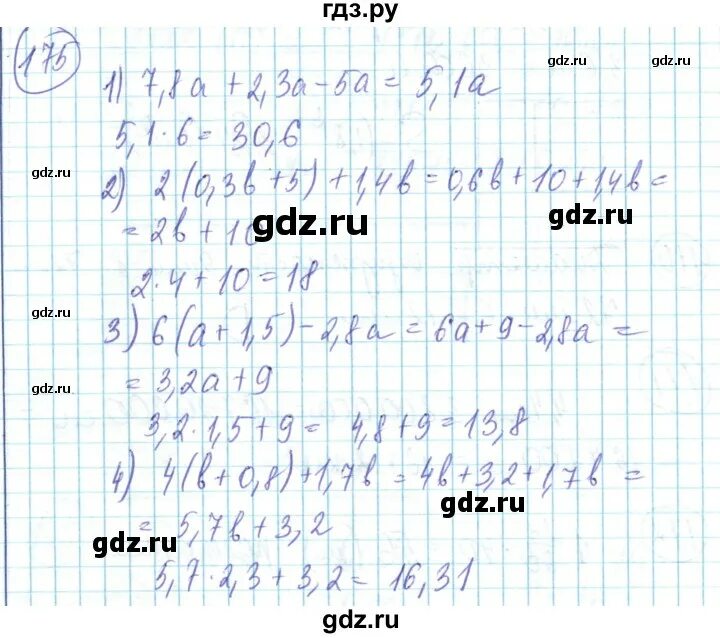 гдз.ру
175
1) 7,8a + 2,3a - 5a = 5,1a
5,1 · 6 = 30,6
2) 2(0,3b + 5) + 1,4b = 0,6b + 10 + 1,4b =
= 2b + 10
2 · 4 + 10 = 18
3) 6(a + 1,5) - 2,8a = 6a + 9 - 2,8a =
= 3,2a + 9
3,2 · 1,5 + 9 = 4,8 + 9 = 13,8
4) 4(b + 0,8) + 1,7b = 4b + 3,2 + 1,7b =
= 5,7b + 3,2
5,7 · 2,3 + 3,2 = 16,31
gdz.ru
gdz.ru
gdz.ru
gdz.ru
gdz.ru
gdz.ru
gdz.ru
gdz.ru
gdz.ru
gdz.ru
gdz.ru
gdz.ru
gdz.ru